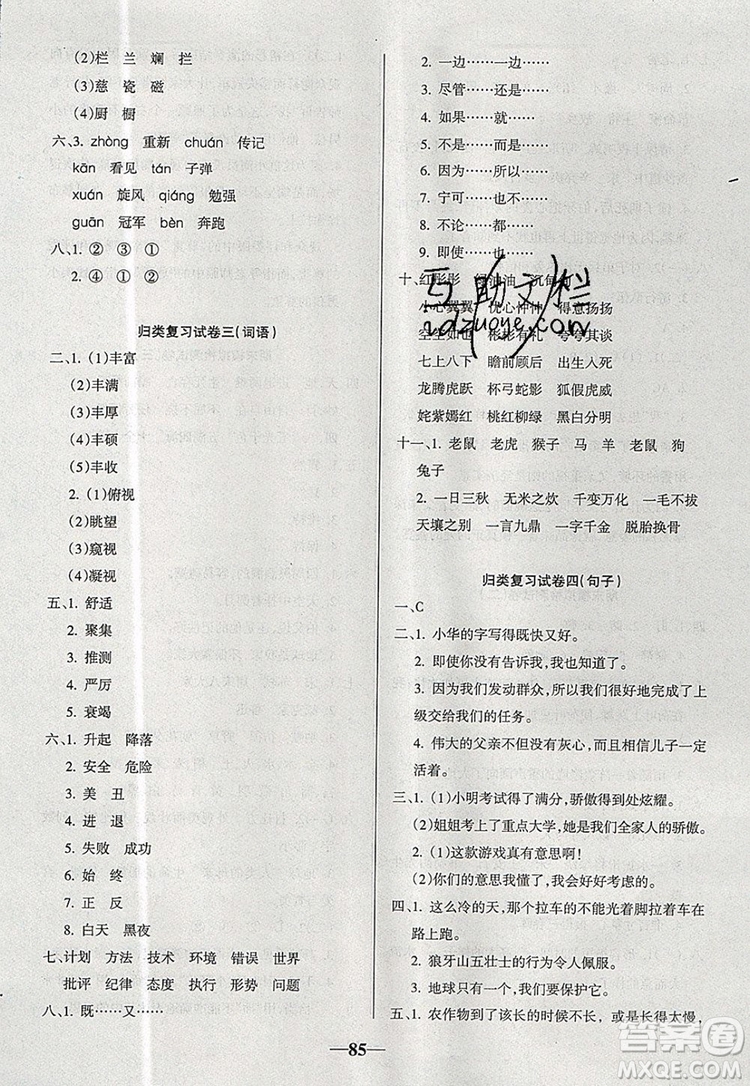 (2)栏 兰 斓 拦
(3)慈 瓷 磁
(4)厨 橱
六、3. zhòng 重新 chuán 传记
kān 看见 tán 子弹
xuán 旋风 qiáng 勉强
guān 冠军 bèn 奔跑
八、1. ② ③ ①
2. ④ ① ②
归类复习试卷三(词语)
二、1. (1)丰富
(2)丰满
(3)丰厚
(4)丰硕
(5)丰收
2. (1)俯视
(2)眺望
(3)窥视
(4)凝视
五、1. 舒适
2. 聚集
3. 推测
4. 严厉
5. 衰竭
六、1. 升起 降落
2. 安全 危险
3. 美 丑
4. 进 退
5. 失败 成功
6. 始 终
7. 正 反
8. 白天 黑夜
七、计划 方法 技术 环境 错误 世界
批评 纪律 态度 执行 形势 问题
八、1. 既……又……
2. 一边……一边……
3. 尽管……还是……
4. 如果……就……
5. 不是……而是……
6. 因为……所以……
7. 宁可……也不……
8. 不论……都……
9. 即使……也……
十、红彤彤 绿油油 沉甸甸
小心翼翼 忧心忡忡 得意扬扬
空空如也 彬彬有礼 夸夸其谈
七上八下 瞻前顾后 出生入死
龙腾虎跃 杯弓蛇影 狐假虎威
姹紫嫣红 桃红柳绿 黑白分明
十一、1. 老鼠 老虎 猴子 马 羊 老鼠 狗
兔子
2. 一日三秋 无米之炊 千变万化 一毛不拔
天壤之别 一言九鼎 一字千金 脱胎换骨
归类复习试卷四(句子)
一、C
二、1. 小华的字写得既快又好。
2. 即使你没有告诉我,我也知道了。
3. 因为我们发动群众,所以我们很好地完成了上
级交给我们的任务。
4. 伟大的父亲不但没有灰心,而且相信儿子一定
活着。
三、1. (1)小明考试得了满分,骄傲得到处炫耀。
(2)姐姐考上了重点大学,她是我们全家人的骄傲。
2. (1)这款游戏真有意思啊!
(2)你们的意思我懂了,我会好好考虑的。
四、1. 这么冷的天,那个拉车的不能光着脚拉着车在
路上跑。
2. 狼牙山五壮士的行为令人佩服。
3. 地球只有一个,我们要保护它。
五、1. 农作物到了该长的时候不长,或是长得太慢,
85
互助文栏
zdzuoye.com
作业精灵